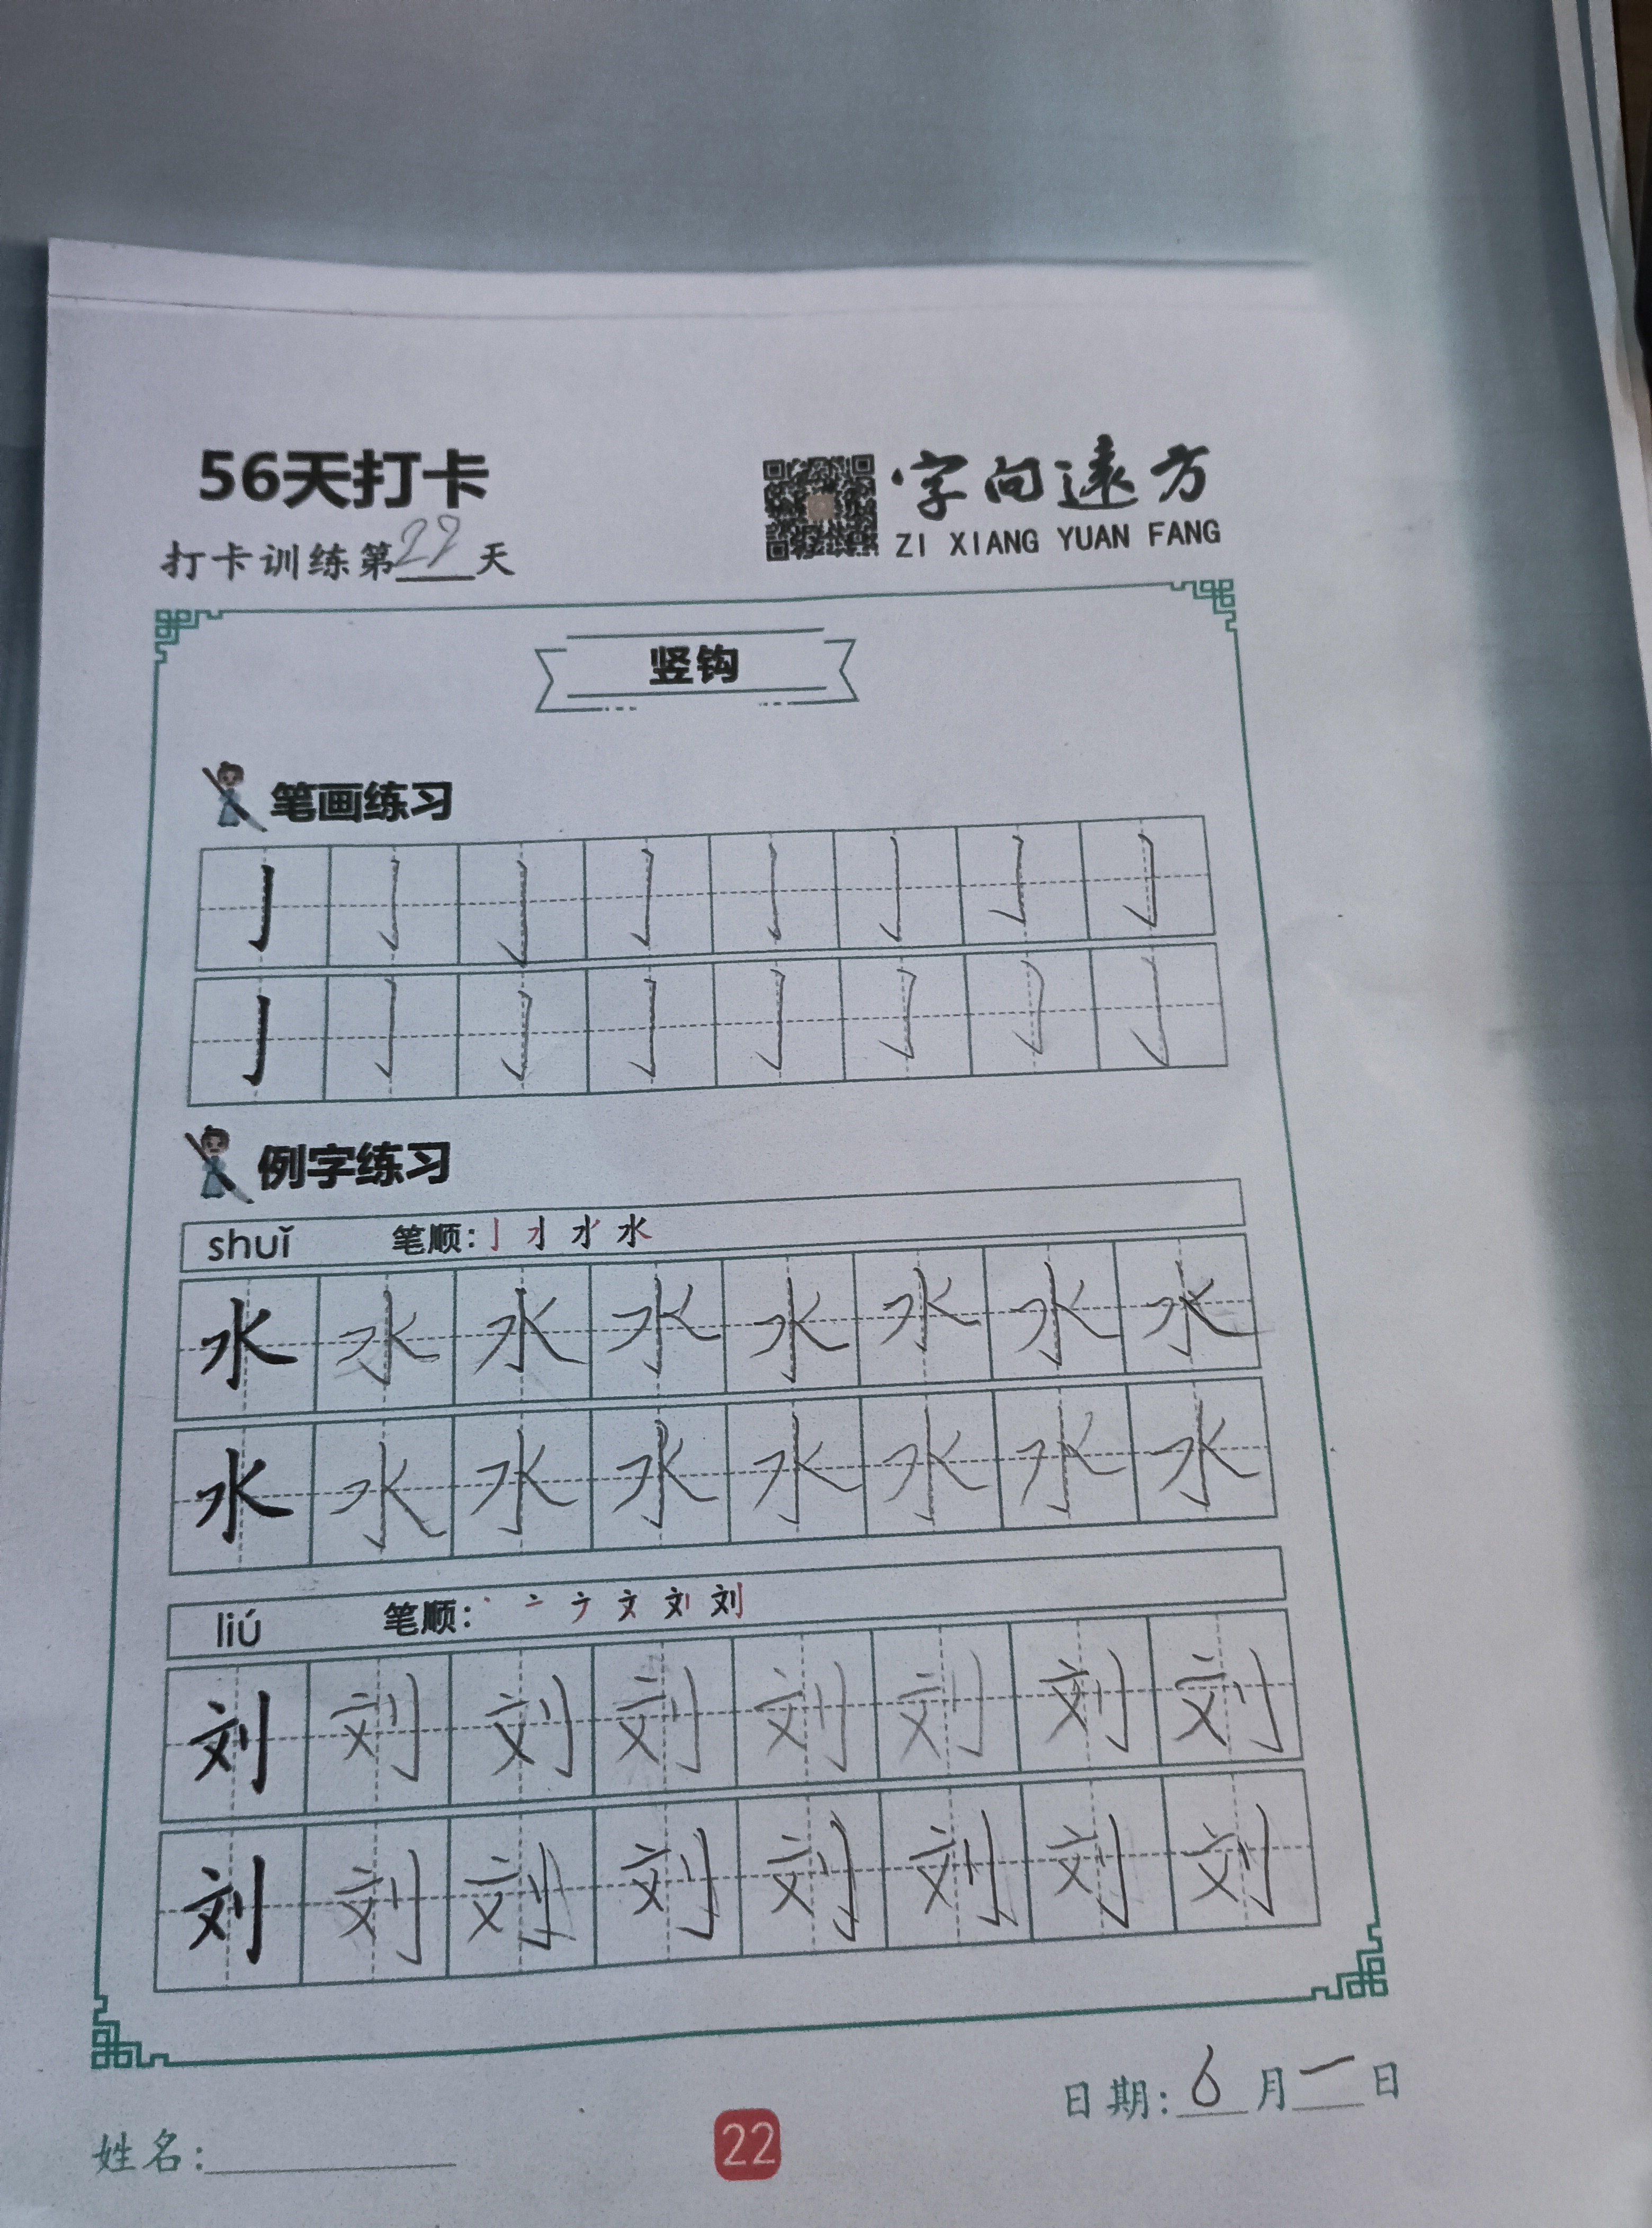 56天打卡
字向远方
ZI XIANG YUAN FANG
打卡训练第29天
竖钩
笔画练习
亅亅亅亅亅亅亅亅
亅亅亅亅亅亅亅亅
例字练习
shuǐ 笔顺：水
水水水水水水水水
水水水水水水水水
liú 笔顺：刘
刘刘刘刘刘刘刘刘
刘刘刘刘刘刘刘刘
日期：6月一日
姓名：
22